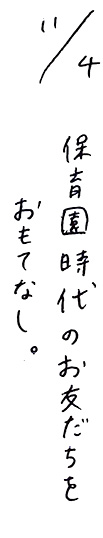 11/4
保育園時代のお友だちを
おもてなし。